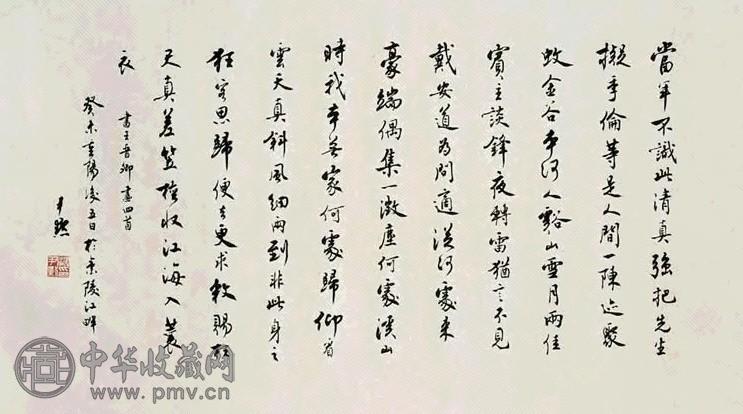 當年不識此清真強把先生
擬季倫等是人間一陳迹聚
蚊金谷本何人谿山雪月兩佳
賓主談鋒夜轉雷猶言不見
戴安道為問適從何處來
豪端偶集一微塵何處溪山
時我本無家何處歸仰看
雲天真斜風細雨到非此身之
狂客思歸便去更求敕賜
天真笠旋收江海入蓑
衣 書王晉卿畫四首
癸未重陽後五日於嘉陵江畔
尹默
中华收藏网
www.pmv.cn